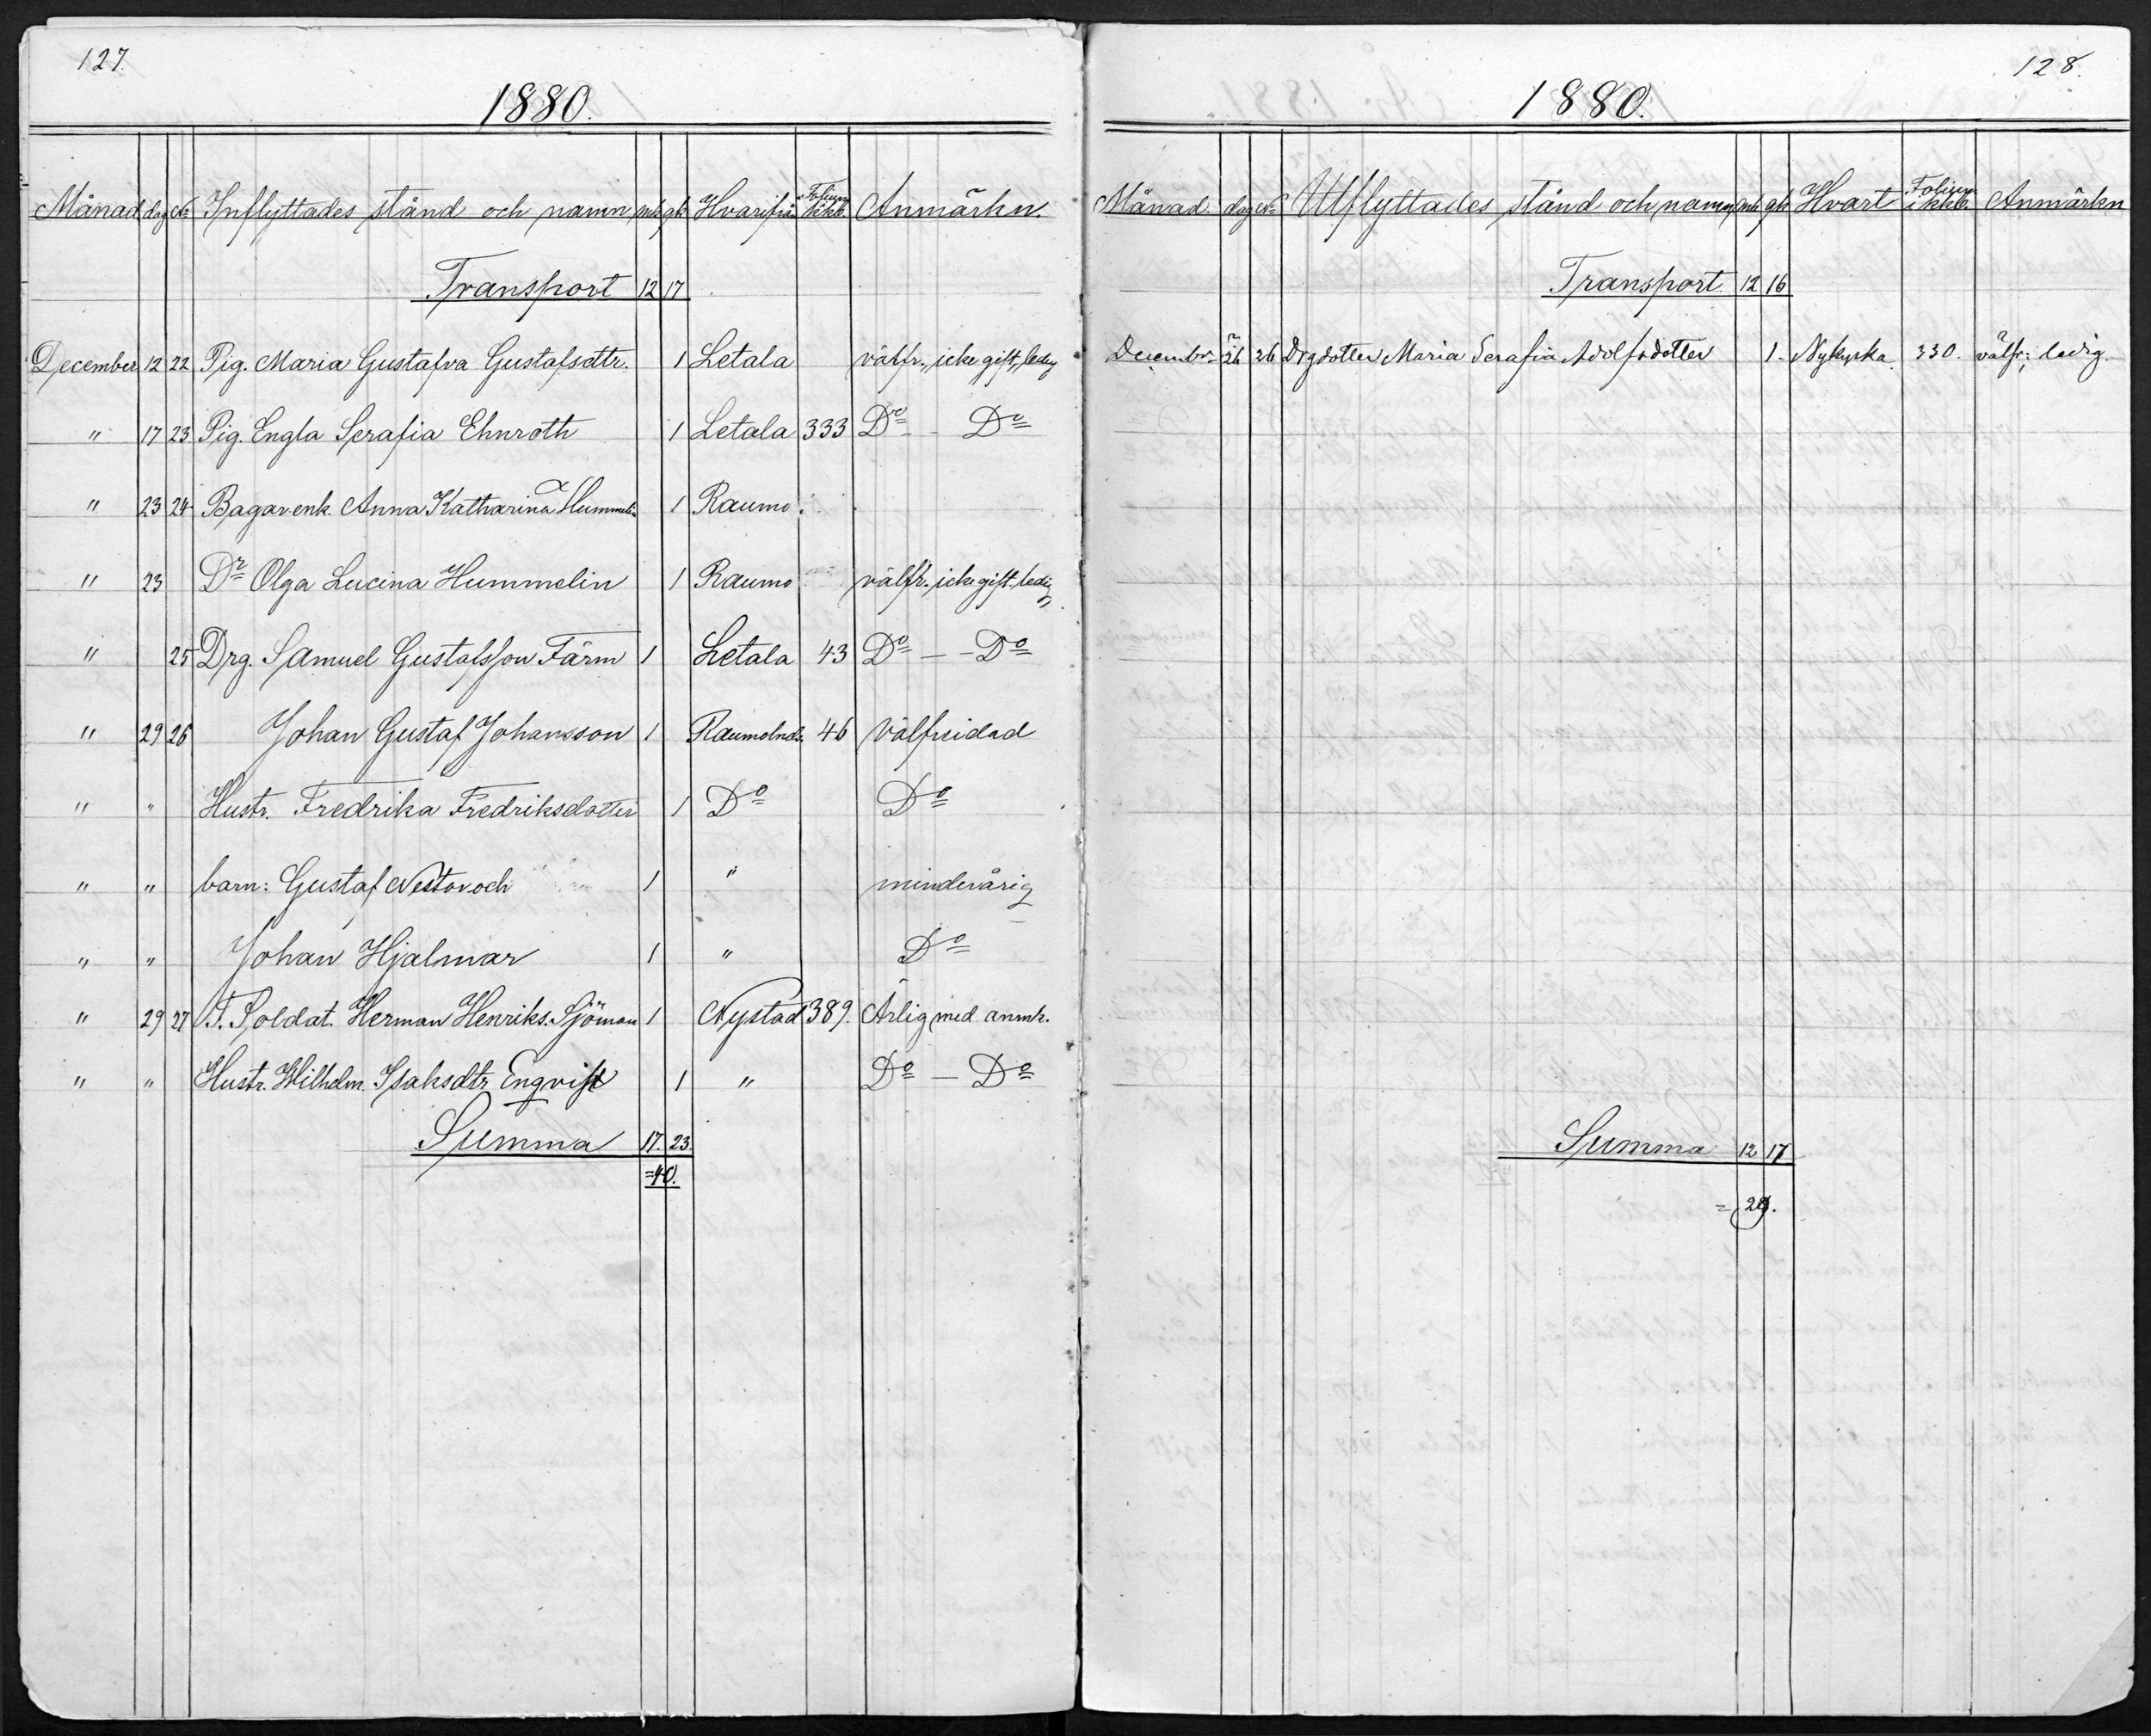 127.
1880.
Månad dag No Inflyttades stånd och namn mk qk Hvarifrån Folium i kkb. Anmärkn.
Transport 12 17
December 12 22 Pig. Maria Gustafva Gustafsdtr. 1 Letala välfr., icke gift, ledig
" 17 23 Pig. Engla Serafia Ehnroth 1 Letala 333 Do - Do
" 23 24 Bagarenk. Anna Katharina Hummelin 1 Raumo
" 23 Dr Olga Lucina Hummelin 1 Raumo välfr. icke gift. ledig
" 25 Drg. Samuel Gustafsson Färm 1 Letala 43 Do - - Do
" 29 26 Johan Gustaf Johansson 1 Raumolnds. 46 Välfreidad
" " Hustr. Fredrika Fredriksdotter 1 Do Do
" " barn: Gustaf Nestor och 1 " minderårig
" " Johan Hjalmar 1 " Do
" 29 27 F. Soldat. Herman Henriks. Sjöman 1 Nystad 389. Ärlig med anmk.
" " Hustr. Wilhelm. Isaksdtr Engvist 1 " Do - Do
Summa 17. 23.
=40.
128.
1880.
Månad. dag No Utflyttades stånd och namn mk qk Hvart Folium i kkb. Anmärkn
Transport 12 16
December 26 Drgdotter Maria Serafia Adolfsdotter 1. Nykyrka 330. välfr; ledig.
Summa 12 17
= 29.